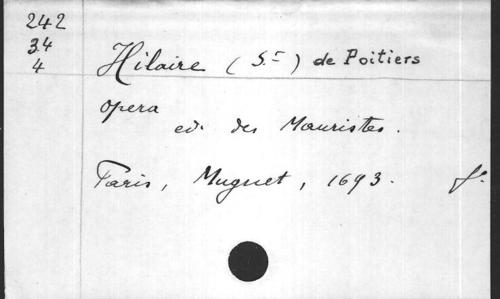 242
3.4
4
Hilaire (St) de Poitiers
Opera
ed. des Mauristes.
Paris, Muguet, 1693. f.